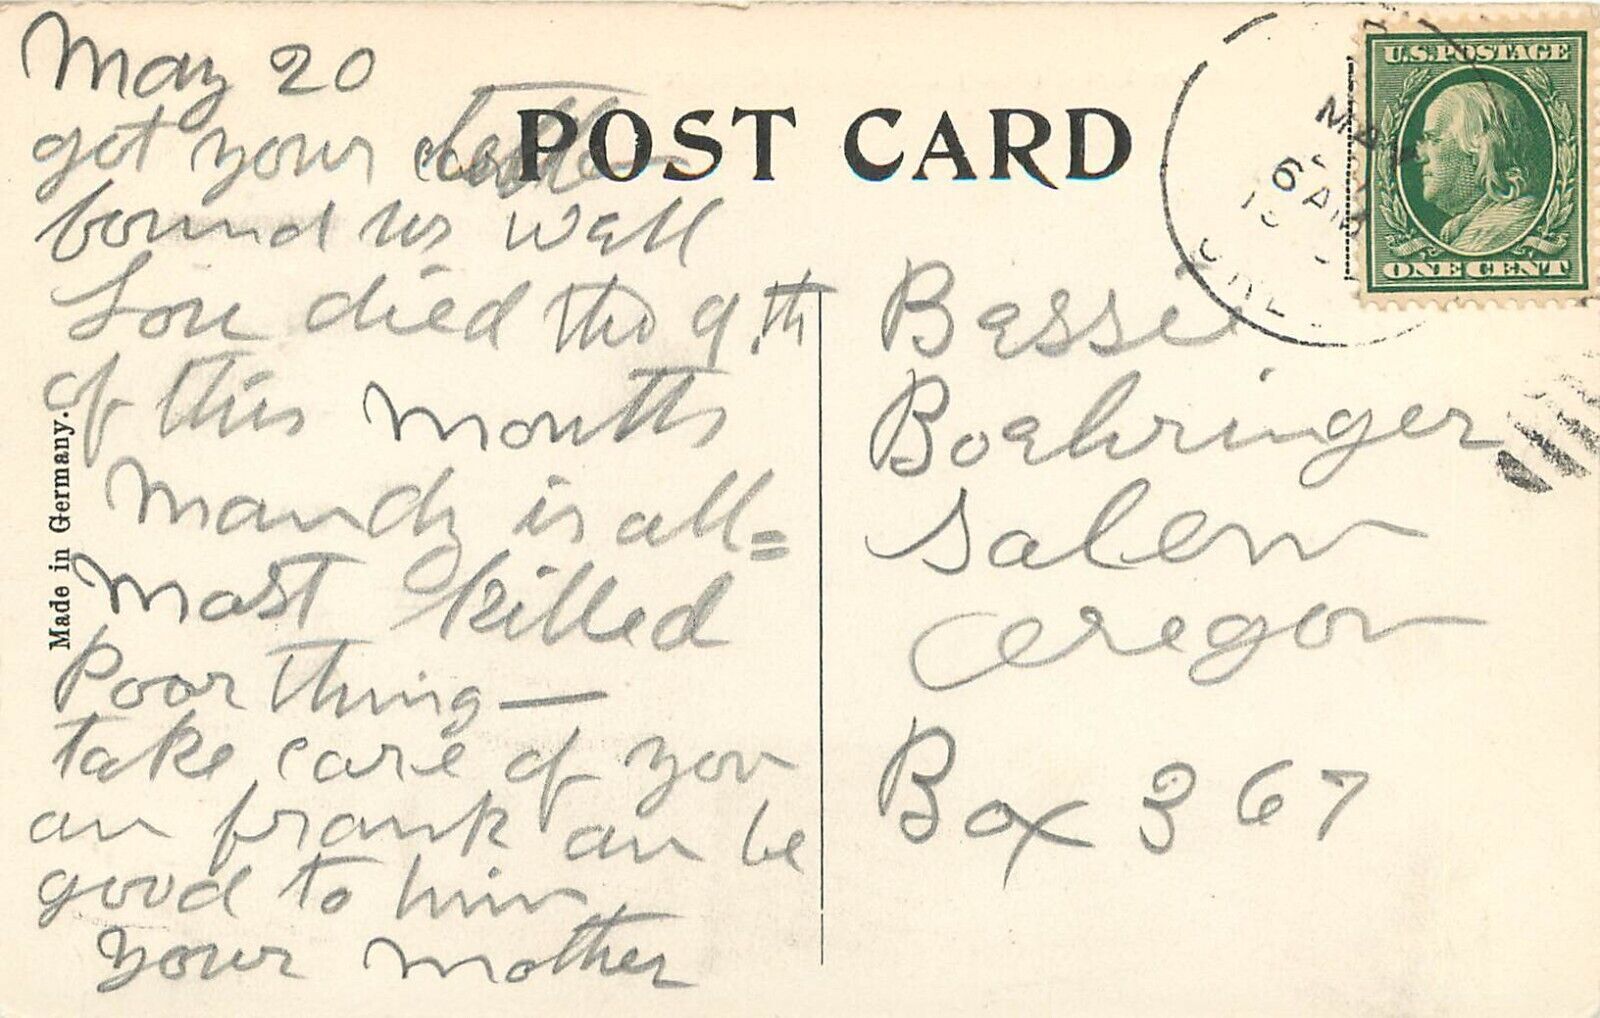 May 20
got your letter
bound us well
Lou died the 9.th
of this Month
Mandy is all=
most killed
Poor thing —
take care of you
an frank an be
good to him
your mother
Made in Germany.
POST CARD
U.S. POSTAGE
ONE CENT
MAY
6 AM
ORE
Bessie
Boehringer
Salem
Oregon
Box 367